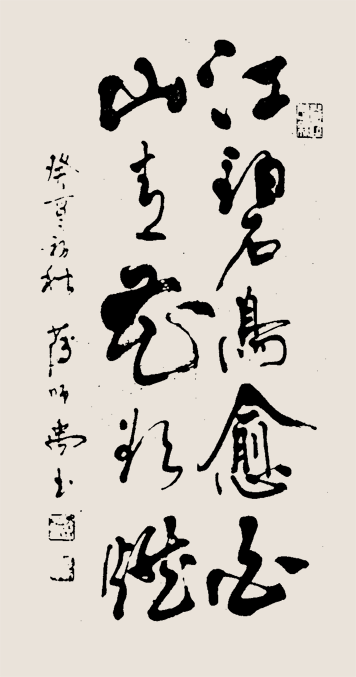 江碧鳥愈白
山青花欲燃
癸亥初秋 師尚书